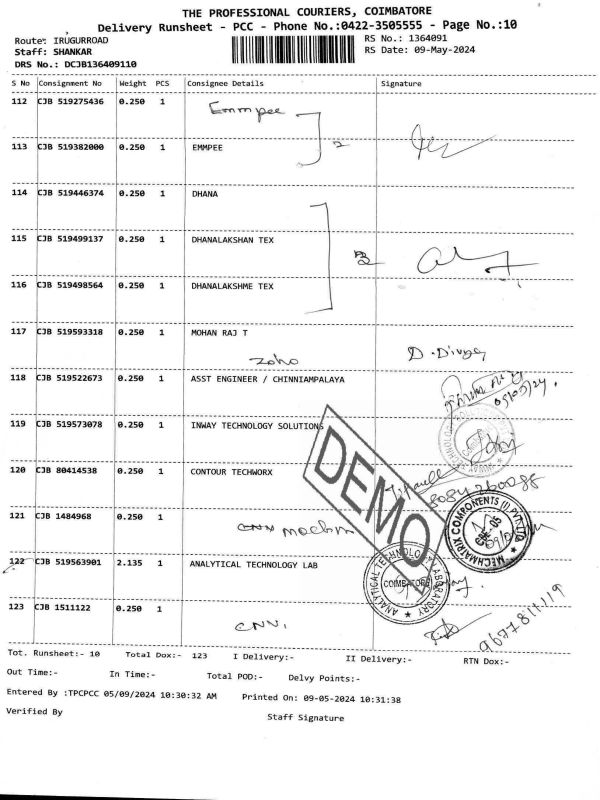 THE PROFESSIONAL COURIERS, COIMBATORE
Delivery Runsheet - PCC - Phone No.:0422-3505555 - Page No.:10
Route: IRUGURROAD
RS No.: 1364091
Staff: SHANKAR
RS Date: 09-May-2024
DRS No.: DCJB136409110
S No Consignment No Weight PCS Consignee Details Signature
112 CJB 519275436 0.250 1 Emmpee
113 CJB 519382000 0.250 1 EMMPEE 2
114 CJB 519446374 0.250 1 DHANA
115 CJB 519499137 0.250 1 DHANALAKSHAN TEX
116 CJB 519498564 0.250 1 DHANALAKSHME TEX
117 CJB 519593318 0.250 1 MOHAN RAJ T
Zoho D. Divya
118 CJB 519522673 0.250 1 ASST ENGINEER / CHINNIAMPALAYA
119 CJB 519573078 0.250 1 INWAY TECHNOLOGY SOLUTIONS
120 CJB 80414538 0.250 1 CONTOUR TECHWORX
DEMO
121 CJB 1484968 0.250 1 CNN
MECHMATRIX COMPONENTS (I) PVT LTD
CBE-05
122 CJB 519563901 2.135 1 ANALYTICAL TECHNOLOGY LAB
ANALYTICAL TECHNOLOGY LABORATORY
COIMBATORE
123 CJB 1511122 0.250 1 CNN
Tot. Runsheet:- 10 Total Dox:- 123 I Delivery:- II Delivery:- RTN Dox:-
Out Time:- In Time:- Total POD:- Delvy Points:-
Entered By :TPCPCC 05/09/2024 10:30:32 AM Printed On: 09-05-2024 10:31:38
Verified By Staff Signature